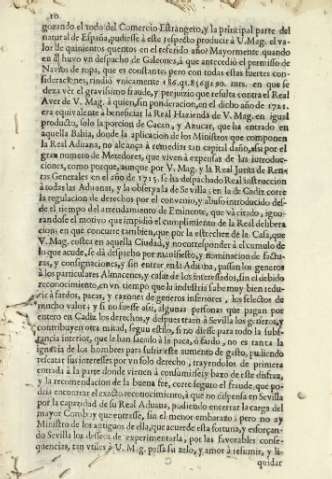 10.
gozando el todo del Comercio Estrangero, y la principal parte del
natural de España, pudiesse à este respecto producir à V. Mag. el va-
lor de quinientos quentos en el referido año? Mayormente, quando
en èl huvo un despacho de Galeones, à que antecediò el permisso de
Navios de ropa, que es constante; pero con todas estas fuertes con-
sideraciones, unicamente mrs. en que se
dexa vèr el gravissimo fraude, y perjuizio que resulta contra el Real
Aver de V. Mag. à quien, sin ponderacion, en el dicho año de 1721.
era equivalente à beneficiar la Real Hazienda de V. Mag. en igual
producto, solo la porcion de Cacao, y Azucar, que ha entrado en
aquella Bahia, donde la aplicacion de los Ministros que componen
la Real Aduana, no alcança à remediar tan capital daño, assi por el
gran numero de Metedores, que viven à expensas de las introduc-
ciones, como porque, aunque por V. Mag. y la Real Junta de Ren-
tas Generales en el año de 1725. se ha despachado Real instruccion
à todas las Aduanas, y la observa la de Sevilla; en la de Cadiz corre
la regulacion de derechos por el convenio, y abuso introducido des-
de el tiempo del arrendamiento de Eminente, que và citado, igno-
randose el motivo que impidiò el cumplimiento de la Real delibera-
cion; en que concurre tambien, que por la estrechez de la Casa, que
V. Mag. costea en aquella Ciudad, y no corresponder à el cumulo de
lo que acude, se dà despacho por manifiesto, y nominacion de Factu-
ras, y consignaciones, y sin entrar en la Aduana, passan los generos
à los particulares Almacenes, y casas de los interessados, sin el debido
reconocimiento, en un tiempo que la industria sabe muy bien redu-
cir à fardos, pacas, y caxones de generos inferiores, los selectos de
mucho valor; y si no fuesse assi, algunas personas que pagan por
entero en Cadiz los derechos, y despues traen à Sevilla los generos,
contribuyen otra mitad, segun estilo, si no diesse para todo la subs-
tancia interior, que le han sacado à la paca, ò fardo, no es tanta la
ignorancia de los hombres para sufrir este aumento de gasto, pudiendo
rescatar sus interesses por un solo derecho, trayendolos de primera
entrada à la parte donde vienen à consumirse; y baxo de este disfraz,
y la recomendacion de la buena fee, corre seguro el fraude, que po-
dria encontrar el exacto reconocimiento, à que no dispensa en Sevilla
por la capacidad de su Real Aduana, pudiendo encerrar la carga del
mayor Comboy que entrasse, sin el menor embarazo; pero no ay
Ministro de los antiguos de ella, que acuerde esta fortuna, y esforçan-
do Sevilla los deseos de experimentarla, por las favorables conse-
quencias, tan utiles à V. Mag. passa su zelo, y amor à resumir, y li-
quidar